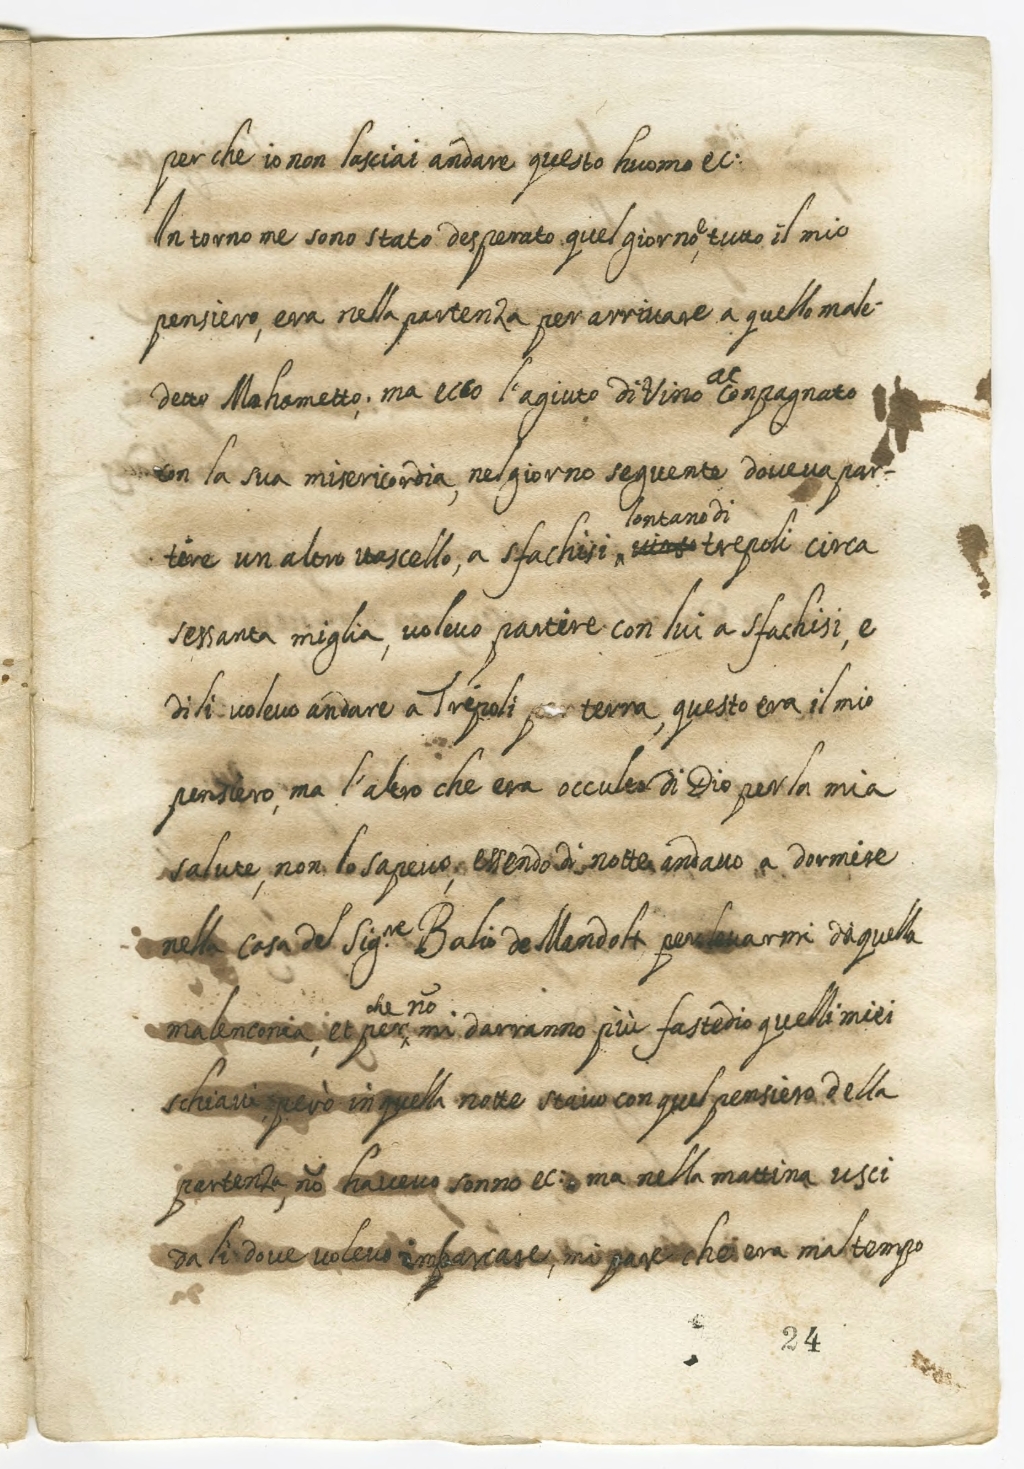 perche io non lasciai andare questo huomo ec:
Intorno me sono stato desperato quel giorno, e tutto il mio
pensiero, era nella partenza per arrivare a quello male-
detto Mahometto; ma ecco l'agiuto diVino accompagnato
con la sua misericordia, nel giorno seguente doveva par-
tire un altro vascello, a sfachisi, lontano di trepoli circa
sessanta miglia, volevo partire con lui a sfachisi, e
di li volevo andare a Trepoli per terra, questo era il mio
pensiero, ma l'altro che era occulto di Dio per la mia
salute, non lo sapevo; essendo di notte andavo a dormire
nella casa del Sig.re Balio de Mandols per levarmi da quella
malenconia, et perche nõ mi darranno più fastedio quelli miei
schiavi, però in quella notte stavo con quel pensiero della
partenza, nõ havevo sonno ec: ma nella mattina usci
da li dove volevo imbarcare, mi pare che era mal tempo
24